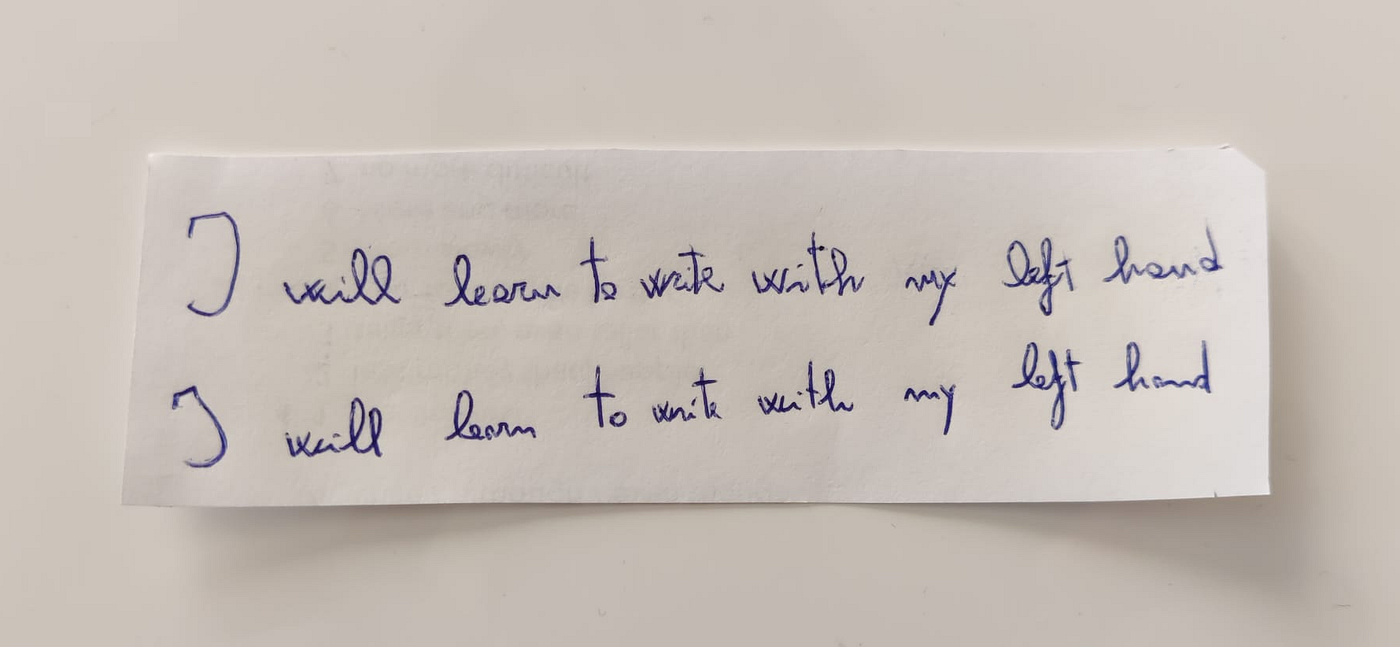 I will learn to write with my left hand
I will learn to write with my left hand